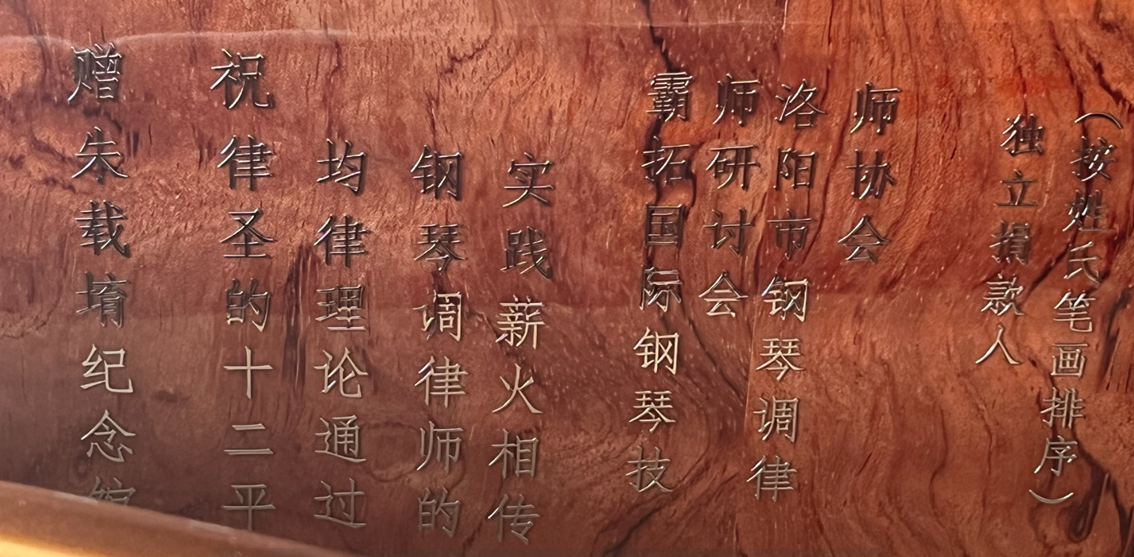 赠朱载堉纪念馆
祝律圣的十二平
均律理论通过
钢琴调律师的
实践薪火相传
霸拓国际钢琴技
师研讨会
洛阳市钢琴调律
师协会
独立捐款人
（按姓氏笔画排序）